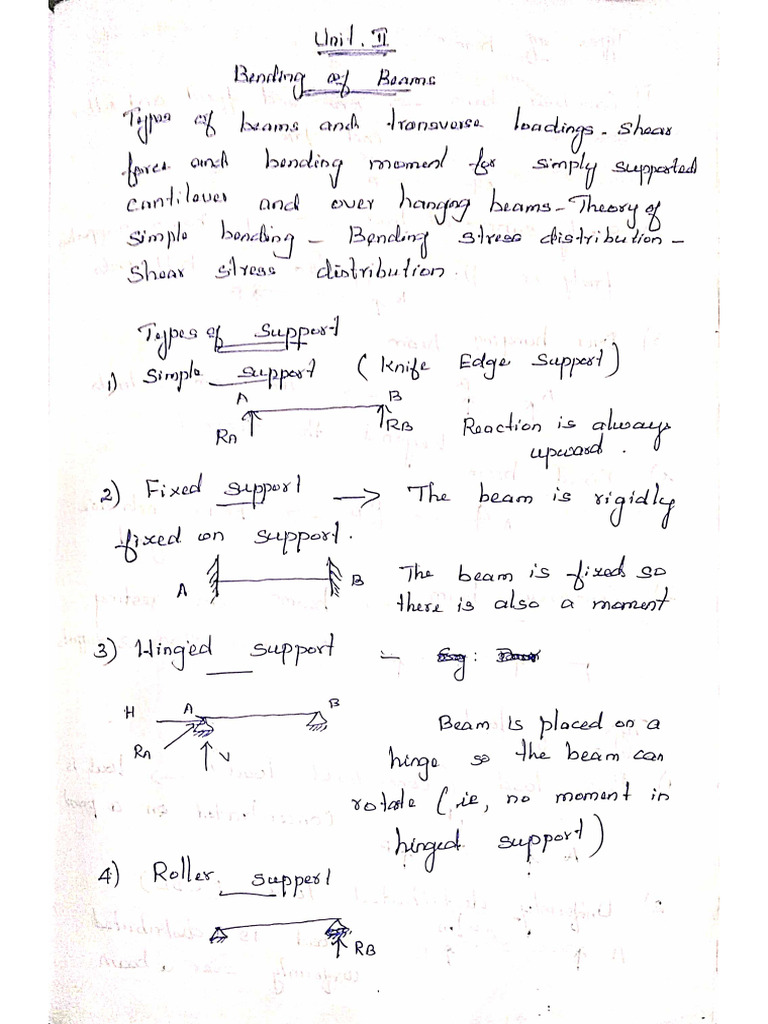 Unit. II
Bending of Beams
Types of beams and transverse loadings - Shear
force and bending moment for simply supported
cantilever and over hanging beams - Theory of
simple bending - Bending stress distribution -
Shear stress distribution.
Types of support
1) Simple support (Knife Edge Support)
A B
RA RB
Reaction is always
upward.
2) Fixed support → The beam is rigidly
fixed on support.
A B
The beam is fixed so
there is also a moment
3) Hinged support - Eg:
H A B
RA V
Beam is placed on a
hinge so the beam can
rotate (ie, no moment in
hinged support)
4) Roller support
RB